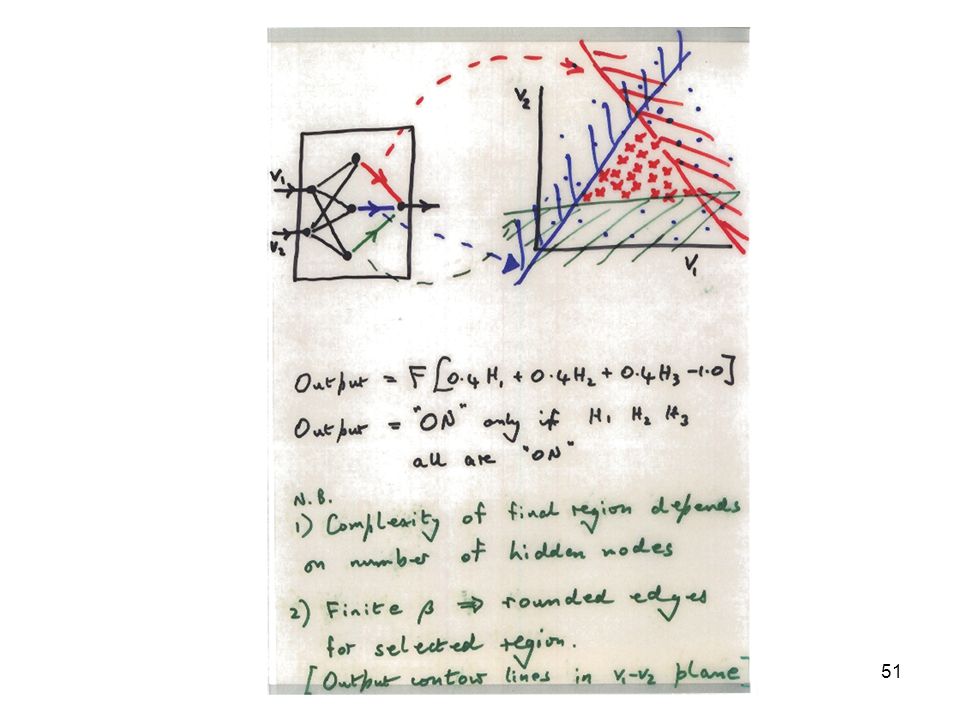 V₂
V₁
V₂
V₁
Output = F[0.4H₁ + 0.4H₂ + 0.4H₃ -1.0]
Output = "ON" only if H₁ H₂ H₃
all are "ON"
N.B.
1) Complexity of final region depends
on number of hidden nodes
2) Finite β ⇒ rounded edges
for selected region.
[Output contour lines in V₁-V₂ plane]
51